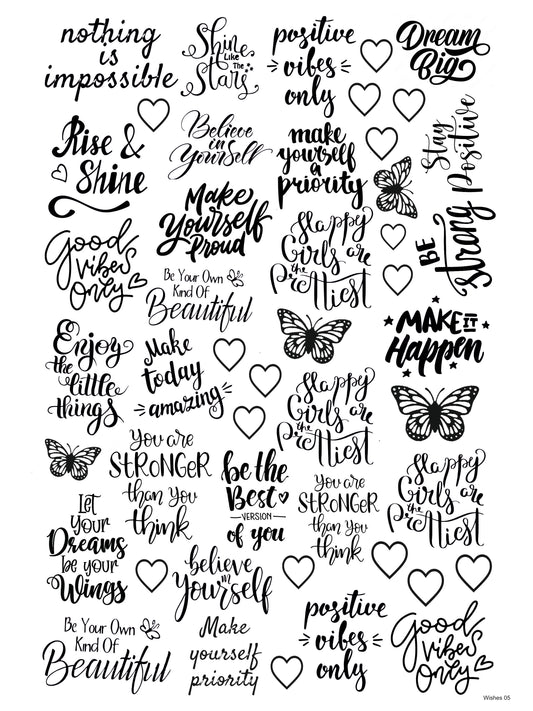 nothing
is
impossible
Shine
Like
The
Stars
positive
vibes
only
Dream
Big
Rise &
Shine
Believe
in
Yourself
make
yourself
a
priority
Stay
Positive
Make
Yourself
Proud
Good
vibes
Only
Slappy
Girls are
the
Prettiest
BE
strong
Be Your Own
Kind Of
Beautiful
MAKE IT
Happen
Enjoy
the
little
things
Make
today
amazing
Slappy
Girls are
the
Prettiest
You are
STRONGER
than You
think
be the
Best
VERSION
of you
You are
STRONGER
than You
think
Slappy
Girls are
the
Prettiest
Let
Your
Dreams
be your
Wings
believe
in
Yourself
Be Your Own
Kind Of
Beautiful
Make
yourself
priority
positive
vibes
only
Good
vibes
Only
Wishes 05